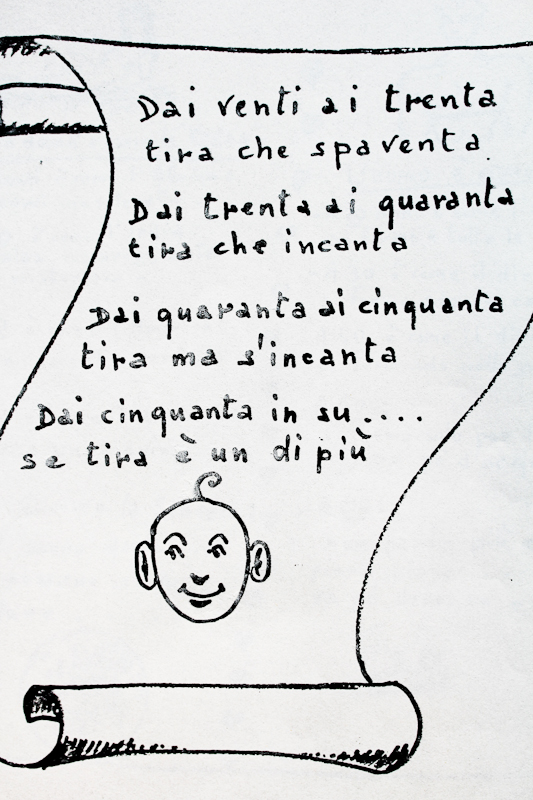 Dai venti ai trenta
tira che spaventa
Dai trenta ai quaranta
tira che incanta
Dai quaranta ai cinquanta
tira ma s'incanta
Dai cinquanta in su....
se tira è un di più